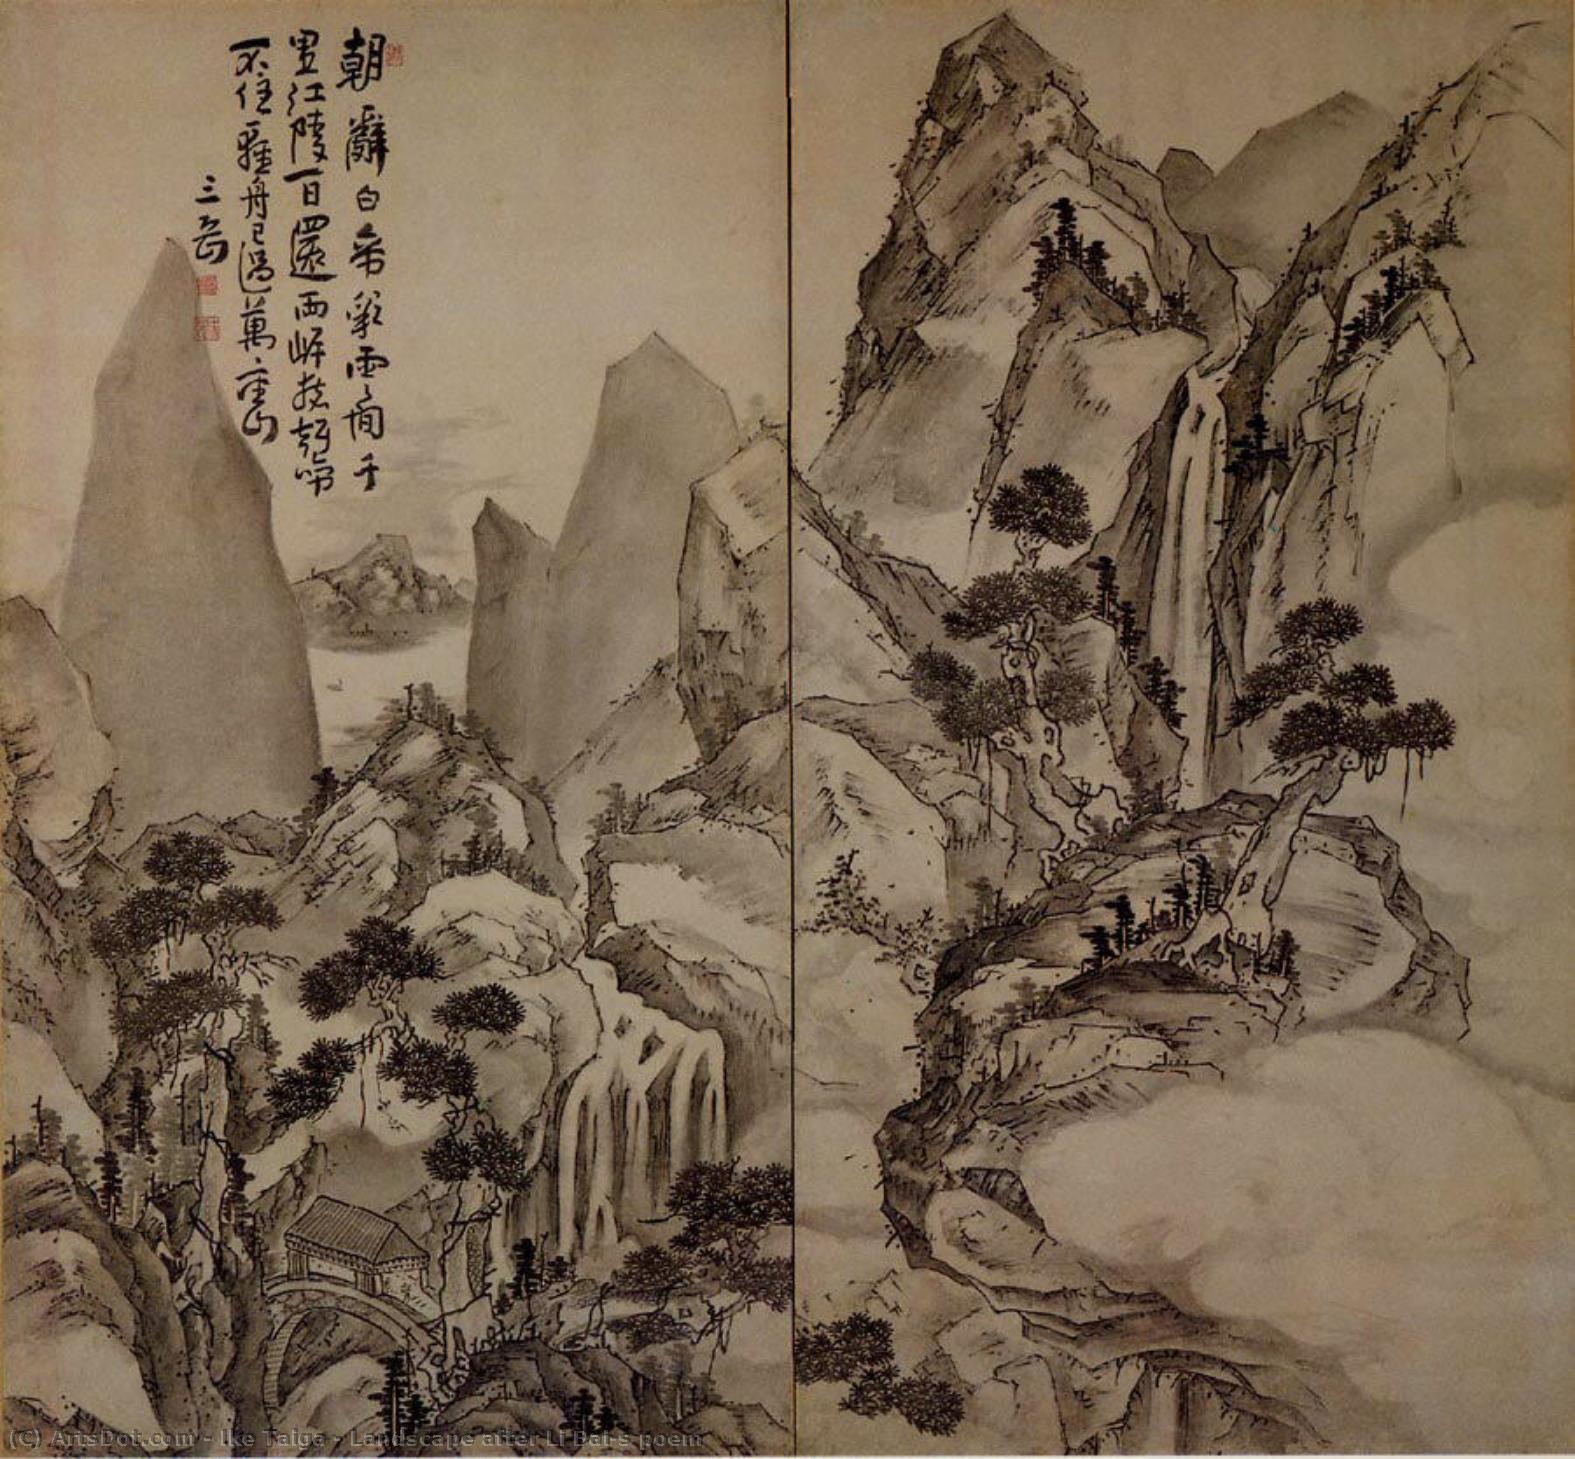 朝辭白帝彩雲間千
里江陵一日還兩岸猿聲啼
不住輕舟已過萬重山
三岳
(C) ArtsDot.com - Ike Taiga - Landscape after Li Bai's poem